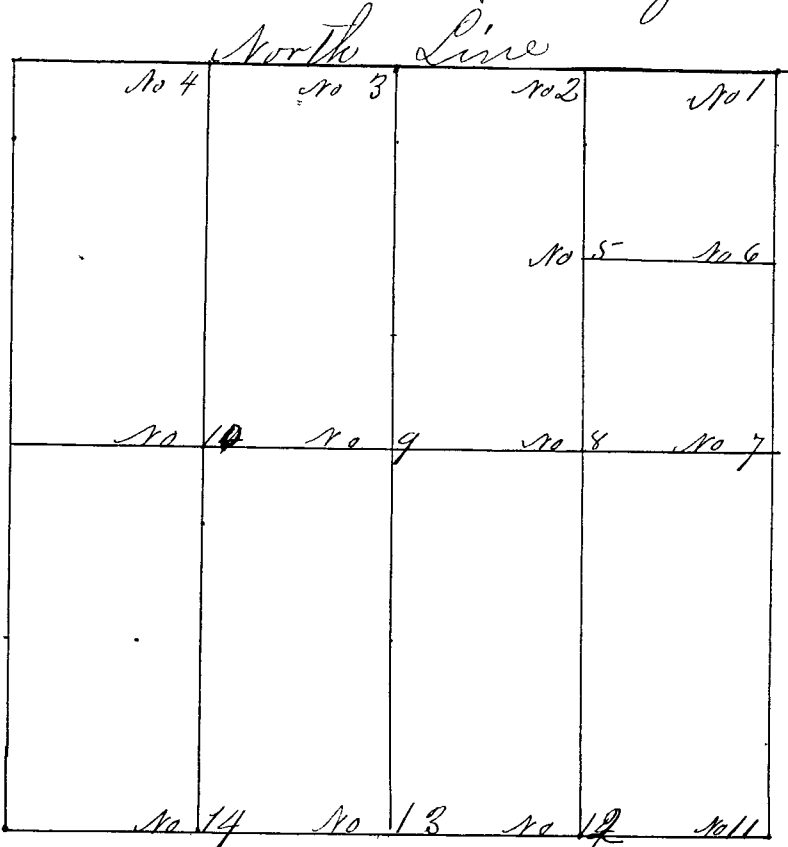 North Line
No 4 No 3 No 2 No 1
No 5 No 6
No 10 No 9 No 8 No 7
No 14 No 13 No 12 No 11